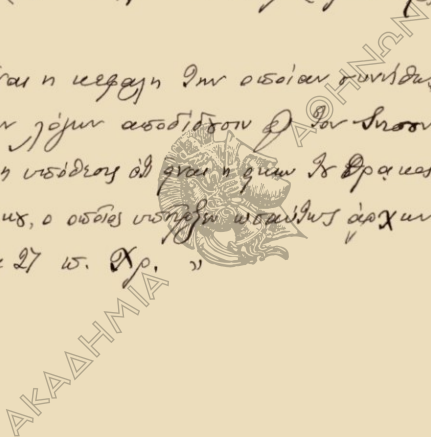 ναι η κεφαλη την οποίαν συνήθως
ν λόγων αποδίδουσιν εις τον
η υπόθεσις ότι είναι η εικών του Θρακος
ο οποίος υπήρξεν ωσαύτως άρχων
27 π. Χρ. »
ΑΚΑΔΗΜΙΑ
ΑΘΗΝΩΝ